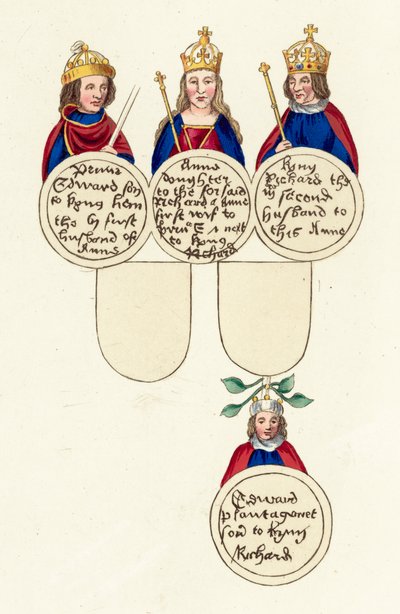 Prince
Edward son
to kyng Hen
the 6 first
husband of
Anne
Anne
doughter
to the forsaid
Richard & Anne
first wif to
prince E & next
to kyng
Richard
Kyng
Richard the
iij second
husband to
this Anne
Edward
plantagenet
son to kyng
Richard